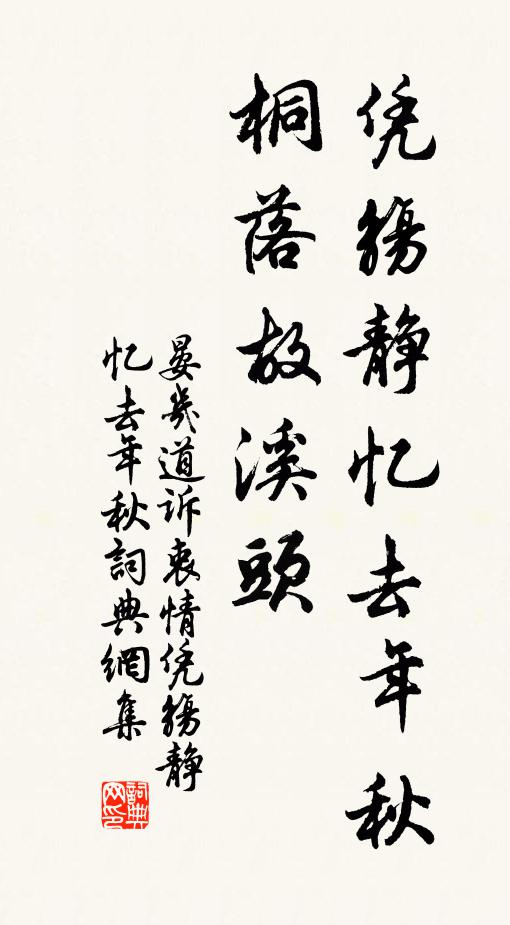 凭觞静忆去年秋
桐落故溪頭
晏幾道诉衷情凭觞静
忆去年秋詞典網集
詞典网印